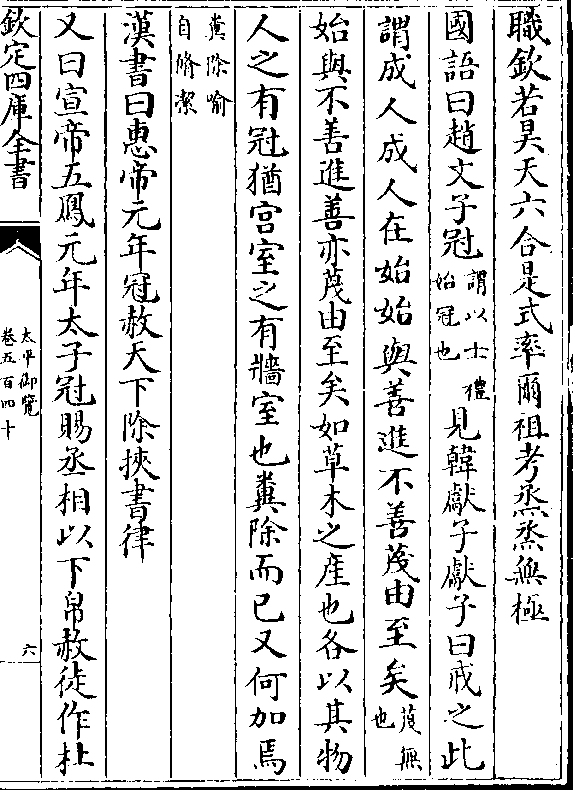 職欽若昊天六合是式率爾祖考烝烝無極
國語曰趙文子冠謂以士禮始冠也見韓獻子獻子曰戒之此
謂成人成人在始始與善進不善蔑由至矣蔑無也
始與不善進善亦蔑由至矣如草木之産也各以其物
人之有冠猶宫室之有牆室也糞除而已又何加焉
糞除喻自脩潔
漢書曰惠帝元年冠赦天下除挾書律
又曰宣帝五鳳元年太子冠賜丞相以下帛赦徒作杜
欽定四庫全書
太平御覽
卷五百四十
六